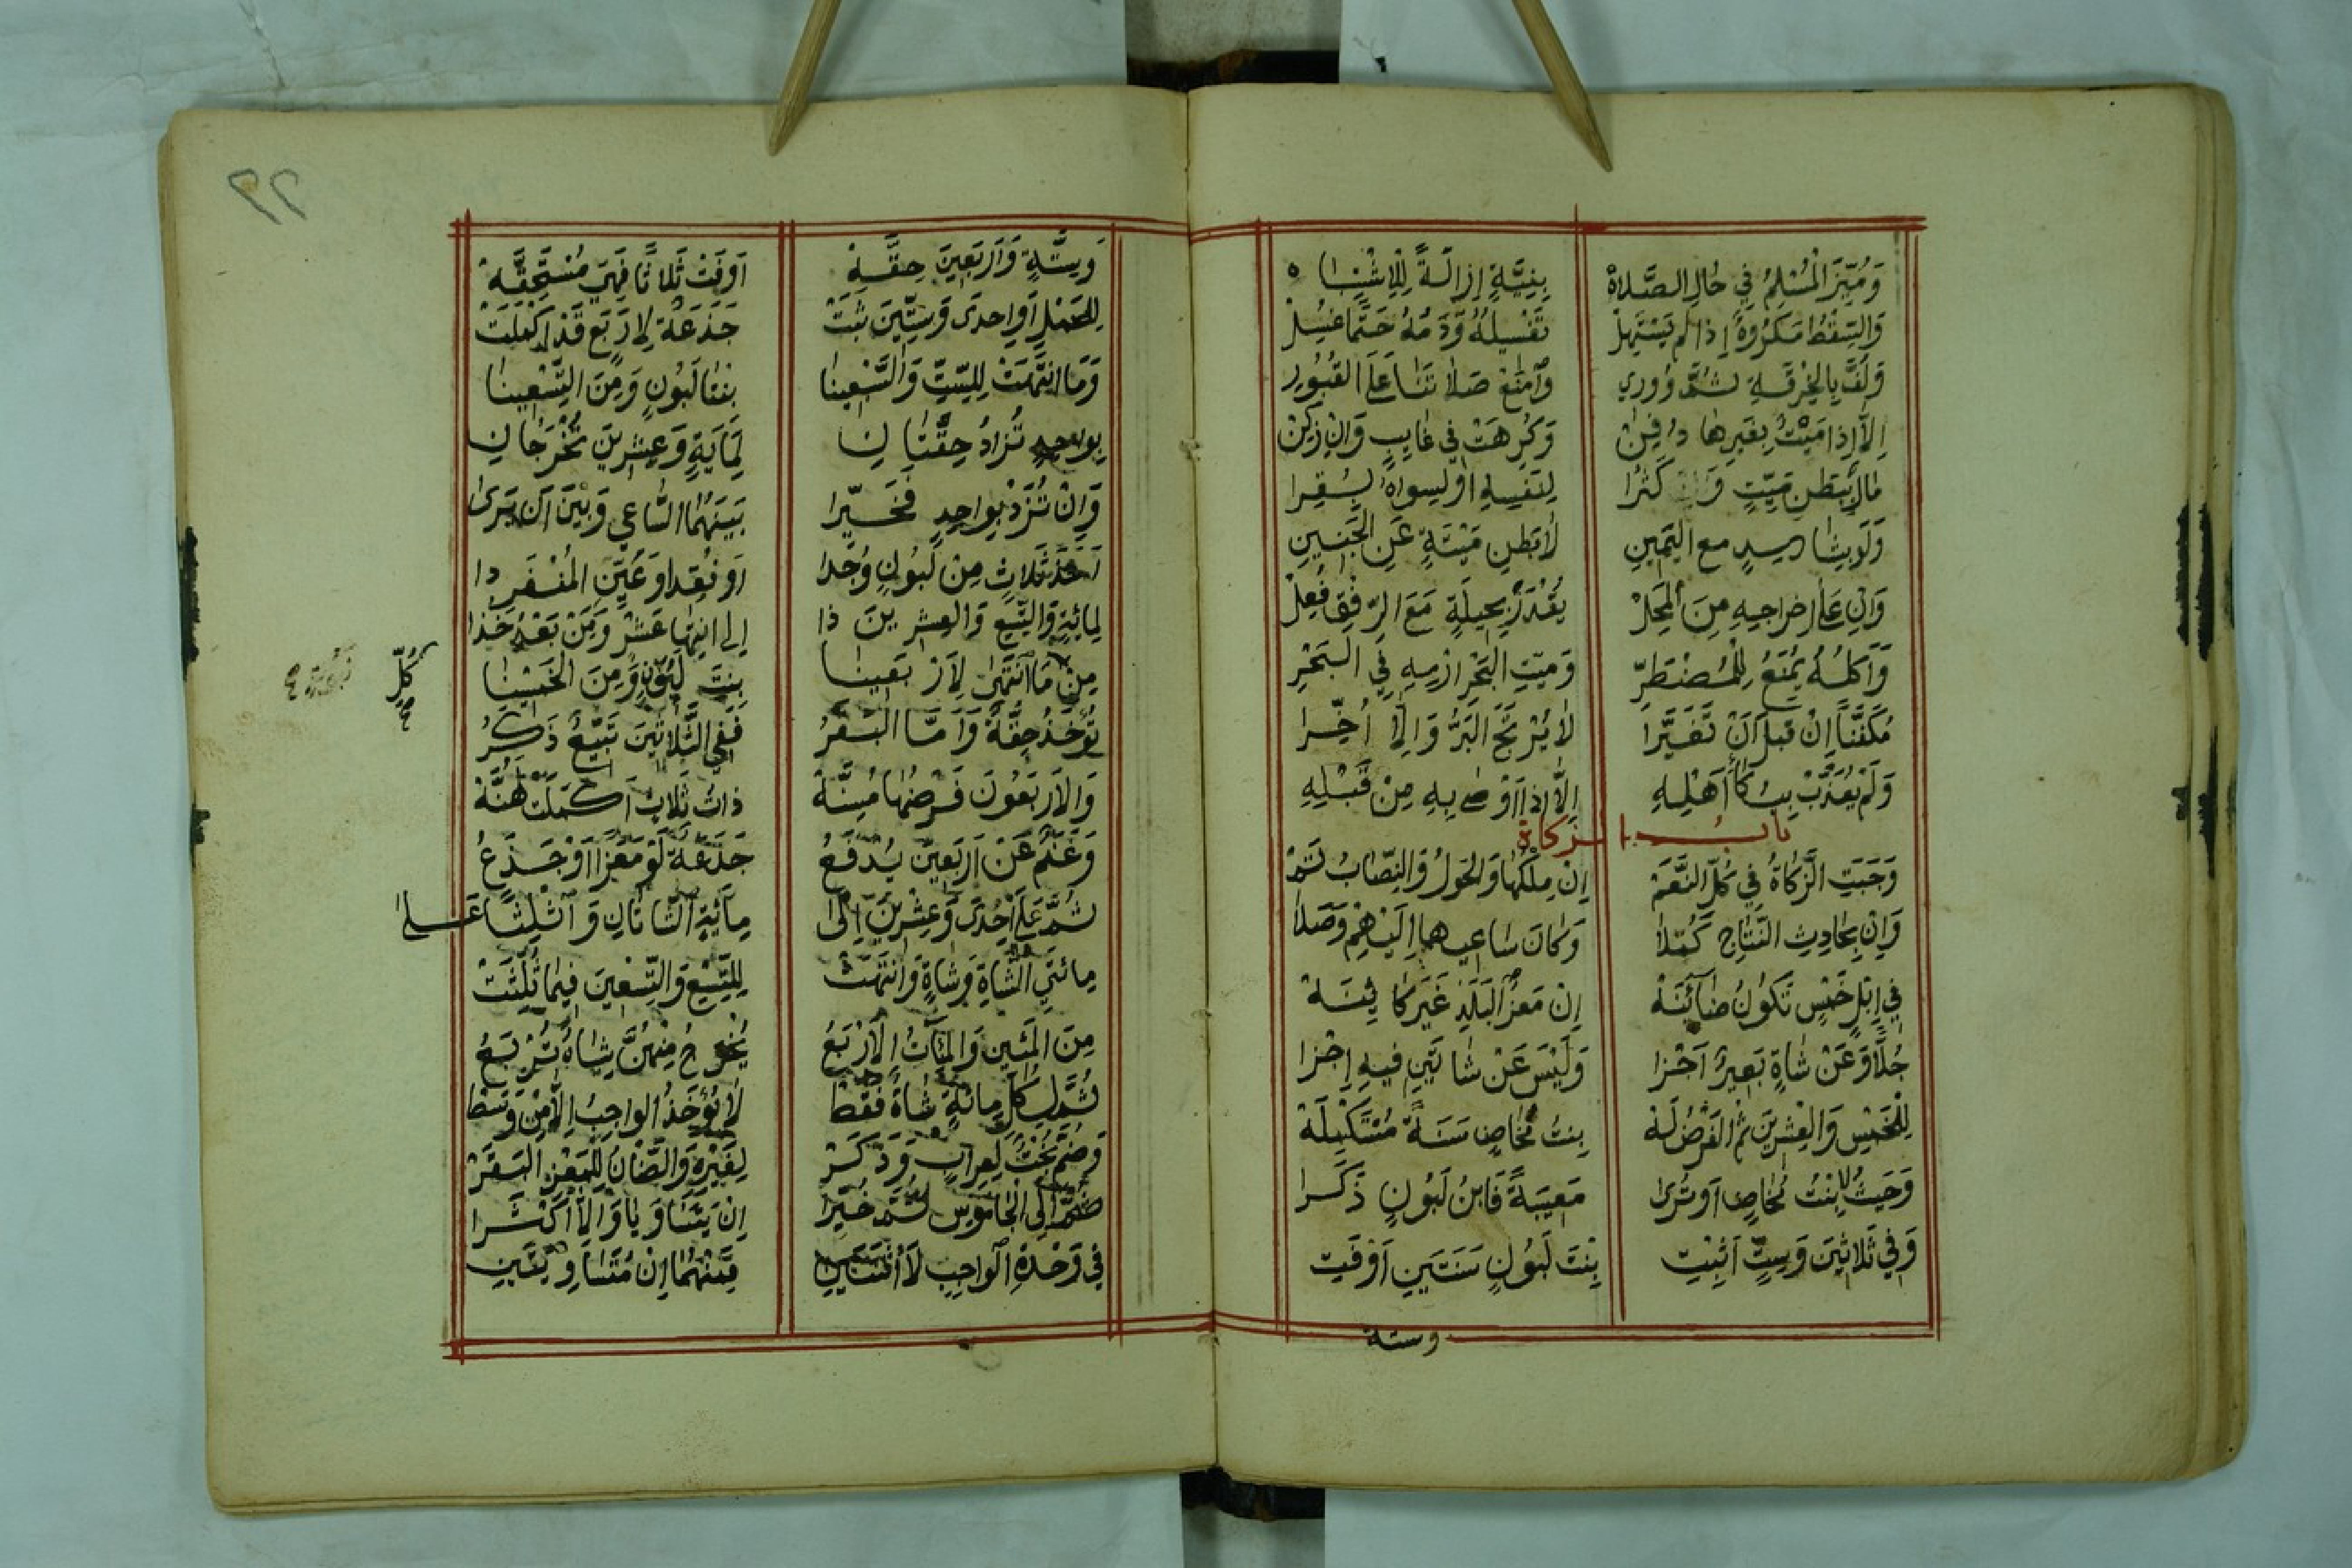 وَمُيِّزَ الْمُسْلِمُ فِي حَالِ الصَّلاةْ بِنِيَّةٍ إِزَالَةً لِلِاشْتِبَاه
وَالسِّقْطُ مَكْرُوهٌ إِذَا لَمْ يَسْتَهِلْ تَغْسِيلُهُ وَدَمُهُ حَتْمًا غُسِلْ
وَلُفَّ بِالْخِرْقَةِ ثُمَّ وُورِي وَامْنَعْ صَلاتَنَا عَلَى القُبُورِ
إِلاَّ إِذَا مَيْتٌ بِغَيْرِهَا دُفِنْ وَكُرِهَتْ فِي غَايِبٍ وَإِنْ زُكِنْ
مَالٌ بِبَطْنِ مَيِّتٍ وَإِنْ كَثُرَا لِنَفْسِهِ اَوْ لِسِوَاهُ بُقِرَا
وَلَوْ بِشَا مع اليَمِينِ لاَ بَطْنِ مَيْتَةٍ عَنِ الجَنِينِ
وَإِنْ عَلَى اخراجِهِ مِنَ الْمَحِلْ يُقْدَرْ بِحِيلَةٍ مَعَ الرِّفْقِ فُعِلْ
وَاَكْلُهُ يُمْنَعُ لِلْمُضْطَرِّ وَمَيِّتِ البَحْرِ ارْمِهِ فِي البَحْرِ
مُكَفَّنًا إِنْ قَبْلَ اَنْ تَغَيَّرَا لاَ يُرْتَجَ البَرُّ وَإِلَّا أُخِّرَا
وَلَمْ يُعَذَّبْ بِبُكَا أَهْلِهِ إِلاَّ إِذَا اَوْصَى بِهِ مِنْ قَبْلِهِ
بابُ الزكاة
وَجَبَتِ الزَّكَاةُ فِي كُلِّ النَّعَمْ إِنْ مِلْكُهَا وَالحَوْلُ وَالنِّصَابُ تَمْ
وَإِنْ بِحَادِثِ النَّتَاجِ كَمُلاَ وَكَانَ سَاعِيهما إِلَيْهِمْ وَصَلاَ
فِي إِبْلٍ خَمْسٍ تَكُونُ ضَائِنَهْ إِنْ مَعْزُ البَلَدِ غَيْرَ كَائِنَةْ
جُلاًّ وَعَنْ شَاةٍ بَعِيرٌ اَجْزَا وَلَيْسَ عَنْ شَاتَيْنِ فِيهِ إِجْزَا
لِلْخَمْسِ وَالْعِشْرِينَ ثُمَّ الفَرْضُ لَهْ بِنْتُ مَخَاضٍ سَنَةً مُسْتَكْمِلَةْ
وَحَيْثُ لاَ بِنْتُ مَخَاضٍ اَوْ تُرَى مَعِيبَةً فَابْنُ لَبُونٍ ذَكَرَا
وَفِي ثَلاثِينَ وَسِتٍّ اَثْبِتِ بِنْتَ لَبُونٍ سَنَتَيْنِ اَوْفَتِ
وستة
٢٢
وَسِتَّةٍ وَاَرْبَعِينَ حِقَّةْ اَوْفَتْ ثَلاثًا فَهِيَ مُسْتَحِقَّهْ
لِلحَمْلِ اَوْ إِحْدَى وَسِتِّينَ ثَبَتْ جَذَعَةٌ لِاَرْبَعٍ قَدْ اَكْمَلَتْ
وَمَا انْتَهَتْ لِلسِّتِّ وَالسَّبْعِينَا بِنْتَا لَبُونٍ وَمِنَ التِّسْعِينَا
بِوَاحِدٍ تُزَادُ حِقَّتَانِ لِمَايَةٍ وَعِشْرِينَ تُخْرَجَانِ
وَإِنْ تُزَدْ بِوَاحِدٍ فَخَيِّرَا بَيْنَهُمَا السَّاعِي وَبَيْنَ اَنْ يَرَى
أَخْذَ ثَلاثٍ مِنْ لَبُونٍ وُجَدَا اَوْ فُقِدَا وَعَيِّنِ المُنْفَرِدَا
لِمِائَةٍ وَالتِّسْعِ وَالعِشْرِينَ ذَا إِلى انْتِهَا عَشْرٍ وَمِنْ بَعْدُ خُذَا
مِنْ مَا انْتَهَى لِاَرْبَعِينَا بِنْتَ لَبُونٍ وَمِنَ الخَمْسِينَا
كُلِّ
تُؤْخَذُ حِقَّةٌ وَاَمَّا البَقَرُ فَفِي الثَّلاثِينَ تَبِيعٌ ذَكَرُ
وَالاَرْبَعُونَ فَرْضُهَا مُسِنَّةْ ذَاتُ ثَلاثٍ اَكْمَلَتْهُنَّهْ
وَغَنَمٌ عَنْ اَرْبَعِينَ يُدْفَعُ جَذَعَةٌ لَوْ مَعْزًا اَوْ جَذَعُ
ثُمَّ عَلَى اِحْدَى وَعِشْرِينَ إِلَى مِائَةٍ الشَّاتَانِ وَاثْلِثْنَا عَلَى
مائَتَيِ الشَّاةِ وَشَاةٍ وَانْتَهَتْ لِلتِّسْعِ وَالتِّسْعِينَ فِيمَا ثُلِّثَتْ
مِنَ المَئينِ وَالمِئَاتُ الاَرْبَعُ يُخْرَجُ مِنْهُنَّ شِيَاهٌ تُرْبَعُ
ثُمَّ لِكُلِّ مِائَةٍ شَاةٌ فَقَطْ لاَ يُؤْخَذُ الوَاجِبُ إِلاَّ مِنْ وَسَطْ
وَضُمَّ بُخْتٌ لِعِرَابٍ وَذُكَرْ لِغَيْرِهِ وَالضَّانُ لِلمَعْزِ البَقَرْ
ضُمَّ إِلَى الجَامُوسِ ثُمَّ خُيِّرَا إِنْ يَتَسَاوَيَا وَإِلاَّ اَكْثَرَا
فِي وَحْدَةِ الوَاجِبِ لاَ اثْنَتَيْنِ مِنْهُمَا إِنْ مُتَسَاوِيَيْنِ